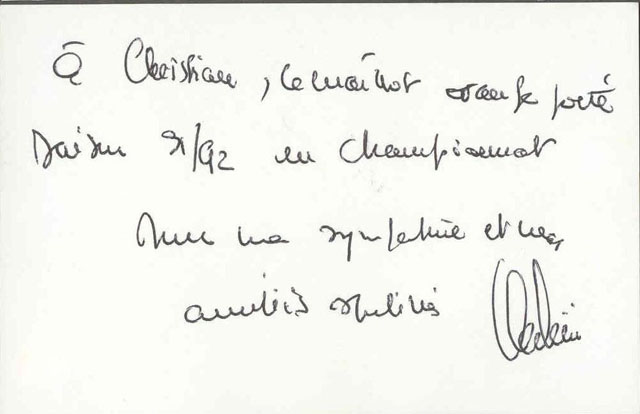 à Christian, le maillot orange porté
Saison 91/92 en Championnat
Avec ma sympathie et mes
amitiés sportives